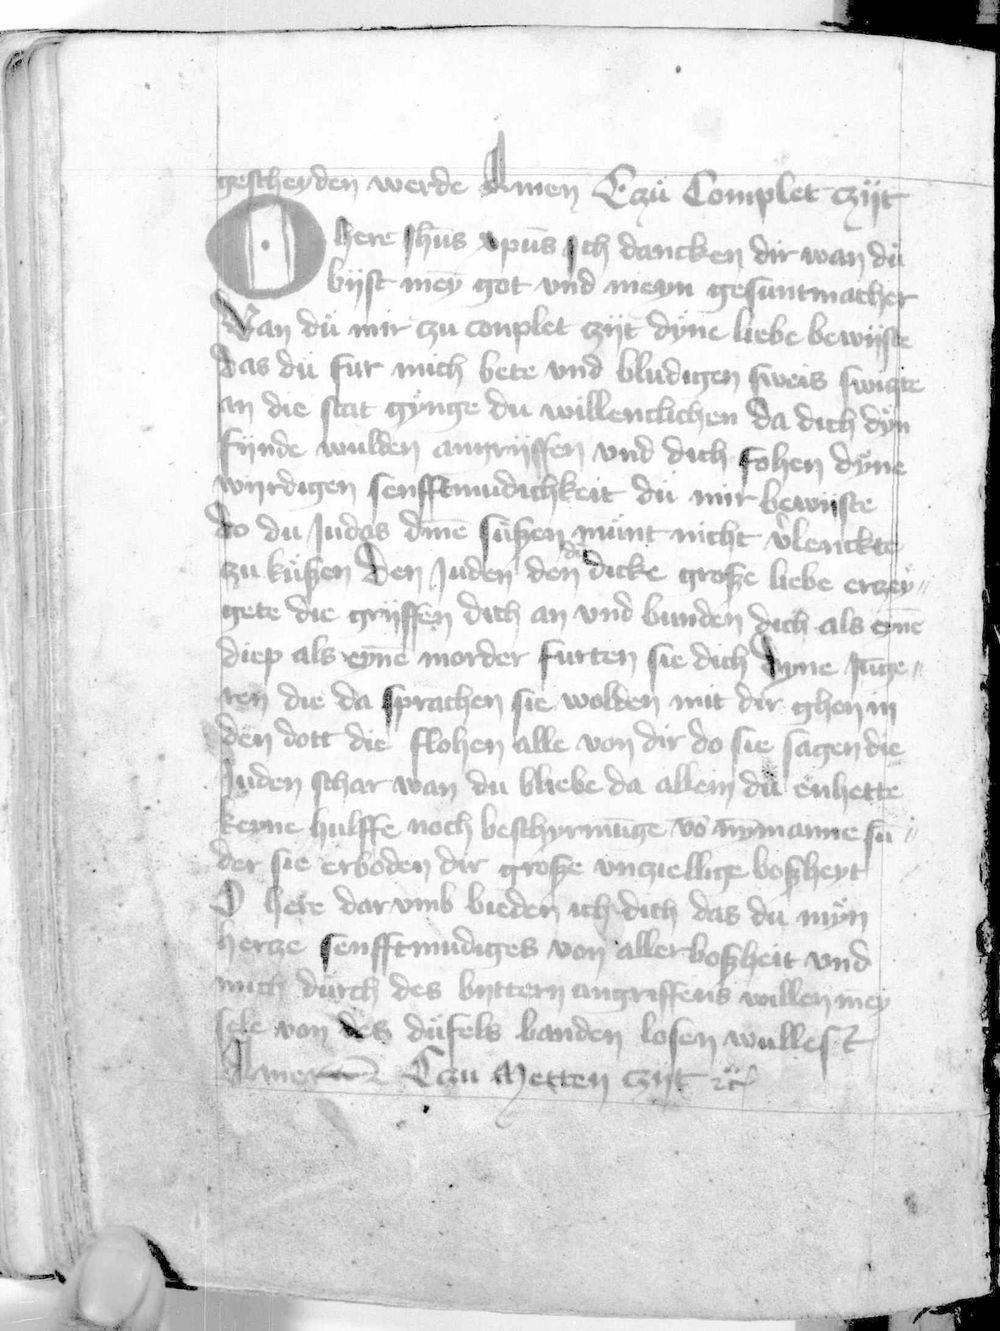 gescheyden werde Amen Czu Complet czijt
O here ihūs xpūs Ich dancken dir wan du
bijst mey̅ got vnd meyn gesuntmacher
Wan dü mir czu conplet czijt dÿne liebe bewijste
das dü fur mich bete vnd bludigen sweis swigte
an die stat gÿnge du willenclichen da dich dÿn
fijnde wulden angrijffen vnd dich fohen dÿne
wyrdigen senfftmudichkeit dü mir bewijste
do du Judas dine̅ süßen münt nicht v̓lenckte
zu küßen Den Juden den du dicke große liebe erzey„
gete die grijffen dich an vnd bunden dich als eyne̅
diep als eyne̅ morder furten sie dich Dyne Ju̅ge„
ren die da sprachen sie wolden mit dir ghen in
den dott die flohen alle von dir do sie sagen die
Juden schar wan du bliebe da allein dü enhette
keyne hulffe noch beschyrmu̅ge vo̅ nymanne su„
der sie erboden dir große vnziellige boßheyt
O here dar vmb bieden ich dich das du mÿn
hercze senfftmudiges von aller boßheit vnd
mich durch des byttern angriffens willen mey̅
sele von des düfels banden losen wullest
Amen Czu Metten czijt